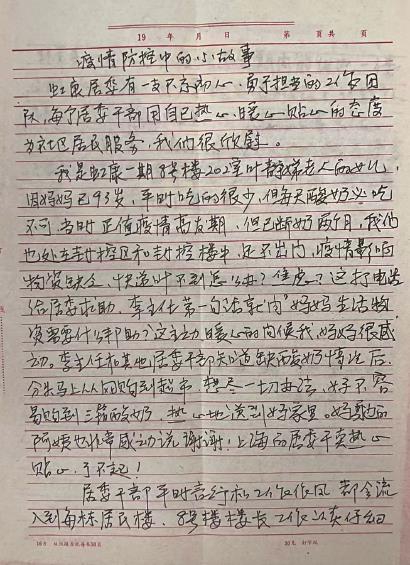 19 年 月 日 第 页共 页
疫情防控中的小故事
虹康居委有一支不忘初心、勇于担当的工作团
队,每个居委干部用自己热心、暖心、贴心的态度
为社区居民服务,我们很欣慰。
我是虹康一期8号楼202室叶静娴老人的女儿,
因妈妈已93岁,平时吃的很少,但每天酸奶必吃
不可,当时正值疫情高发期,但已断奶两个月,我们
也处在封控区和封控楼中,足不出门,疫情影响
物资缺乏,快递叫不到怎么办?焦虑?这打电话
给居委求助,李主任第一句话就问"妈妈生活物
资需要什么帮助?这主动暖心的问候我、妈妈很感
动。李主任和其他居委干部知道缺酸奶情况后,
分头马上从团购到超市,想尽一切办法,好不容
易购到三箱酸奶,热心地送到妈家里。妈家的
阿姨也非常感动说:谢谢!上海的居委干真热心
贴心,了不起!
居委干部平时言行和工作作风都会流
入到每栋居民楼。8号楼楼长工作认真仔细